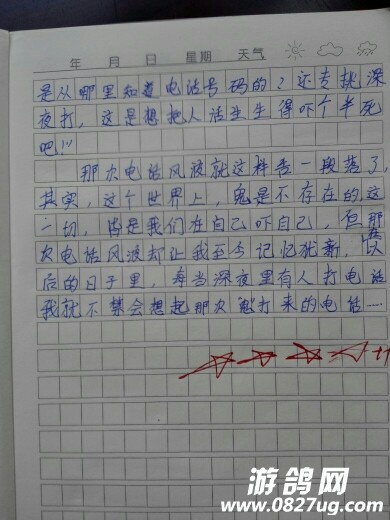 年 月 日 星期 天气
是从哪里知道电话号码的？还专挑深
夜打，这是想把人活生生得吓个半死
吧!!!
那次电话风波就这样告一段落了，
其实，这个世界上，鬼是不存在的，这
一切，皆是我们在自己吓自己，但那
次电话风波却让我至今记忆犹新，在以
后的日子里，每当深夜里有人打电话
我就不禁会想起那次 打来的电话……
游鸽网
www.0827ug.com